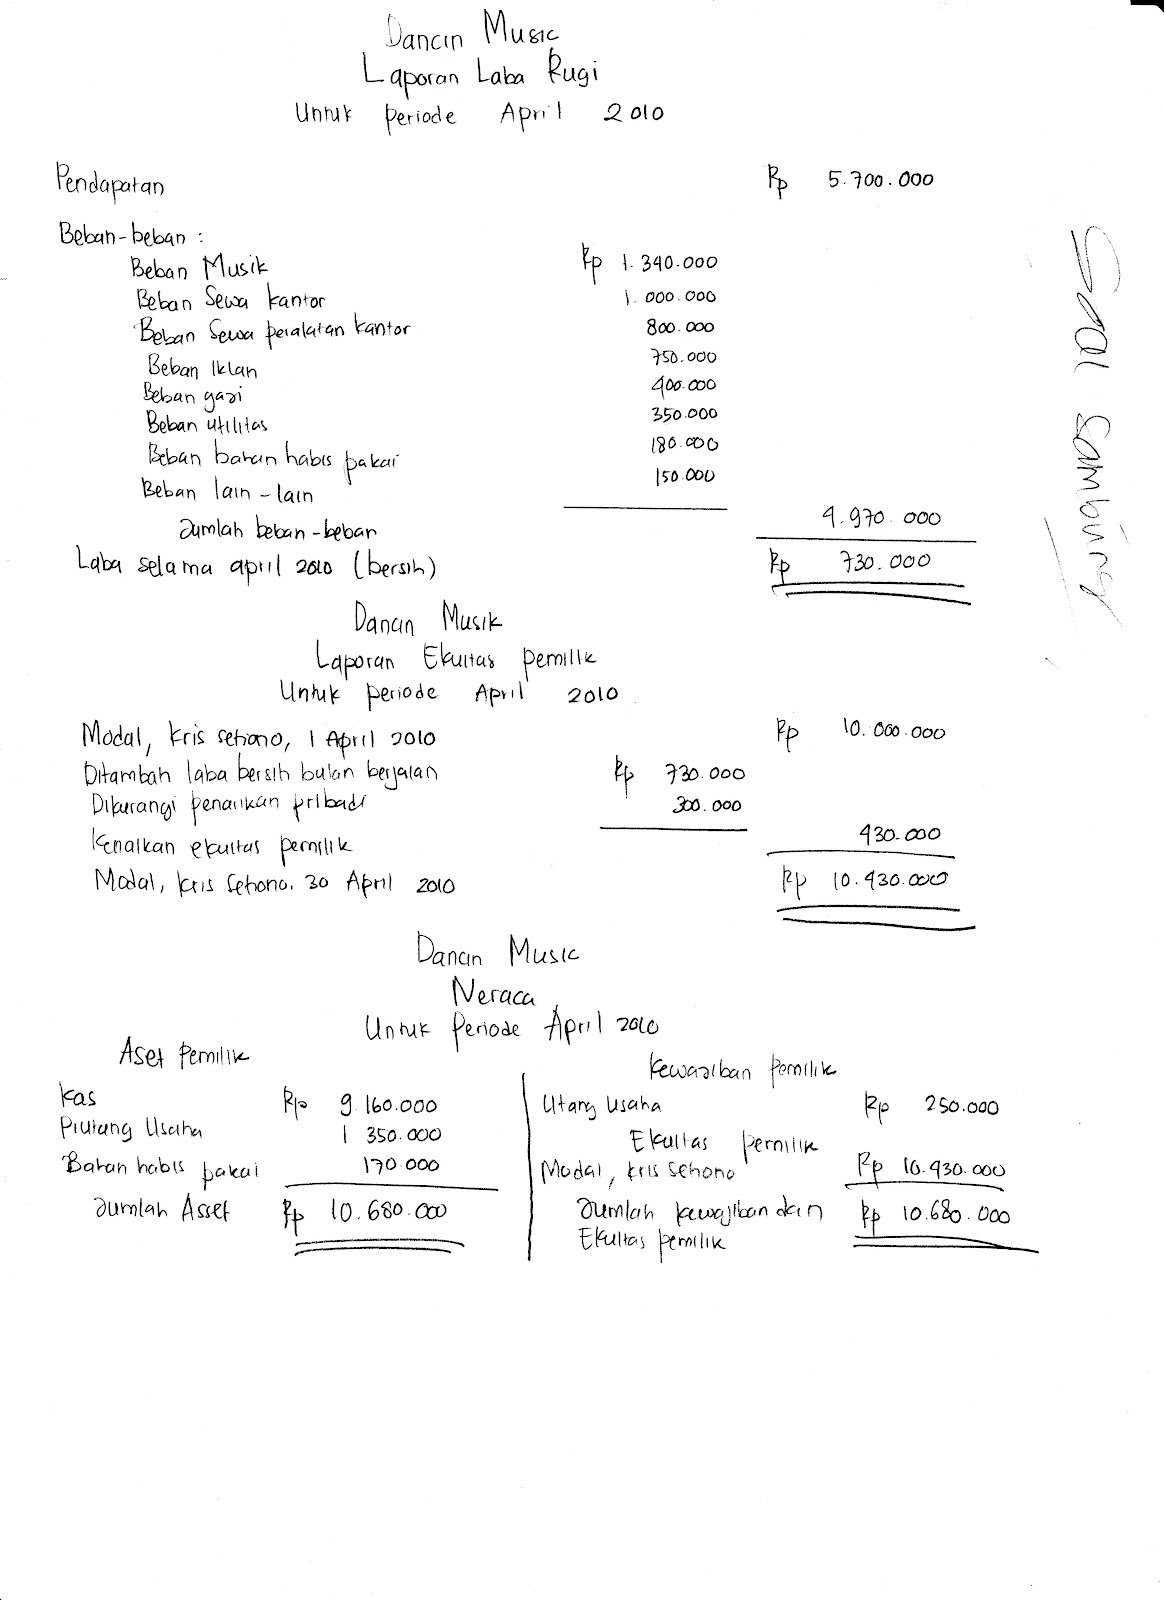 Dancin Music
Laporan Laba Rugi
Untuk periode April 2010
Pendapatan Rp 5.700.000
Beban-beban :
Beban Musik Rp 1.340.000
Beban Sewa kantor 1.000.000
Beban Sewa peralatan kantor 800.000
Beban Iklan 750.000
Beban gaji 400.000
Beban utilitas 350.000
Beban bahan habis pakai 180.000
Beban lain-lain 150.000
Jumlah beban-beban 4.970.000
Laba selama april 2010 (bersih) Rp 730.000
Dancin Musik
Laporan Ekuitas pemilik
Untuk periode April 2010
Modal, kris setiono, 1 April 2010 Rp 10.000.000
Ditambah laba bersih bulan berjalan Rp 730.000
Dikurangi penarikan pribadi 300.000
Kenaikan ekuitas pemilik 430.000
Modal, kris setiono. 30 April 2010 Rp 10.430.000
Dancin Music
Neraca
Untuk Periode April 2010
Aset Pemilik
Kas Rp 9.160.000
Piutang Usaha 1 350.000
Bahan habis pakai 170.000
Jumlah Asset Rp 10.680.000
Kewajiban pemilik
Utang Usaha Rp 250.000
Ekuitas pemilik
Modal, kris setiono Rp 10.430.000
Jumlah kewajiban dan Rp 10.680.000
Ekuitas pemilik
Soal Sambung